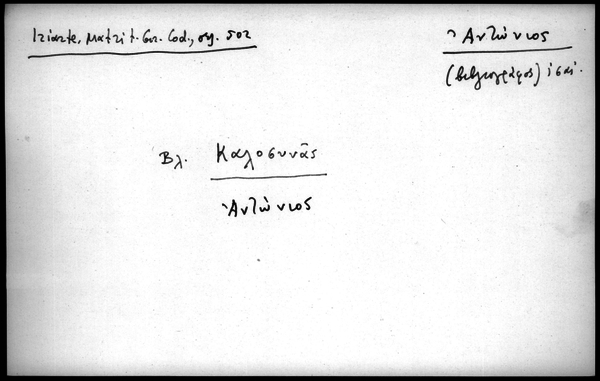 Iriarte, Matrit. Gr. Cod., σγ. 502
Ἀντώνιος
(βιβλιογράφος) ις΄ αἰ.
Βλ. Καλοσυνᾶς
Ἀντώνιος